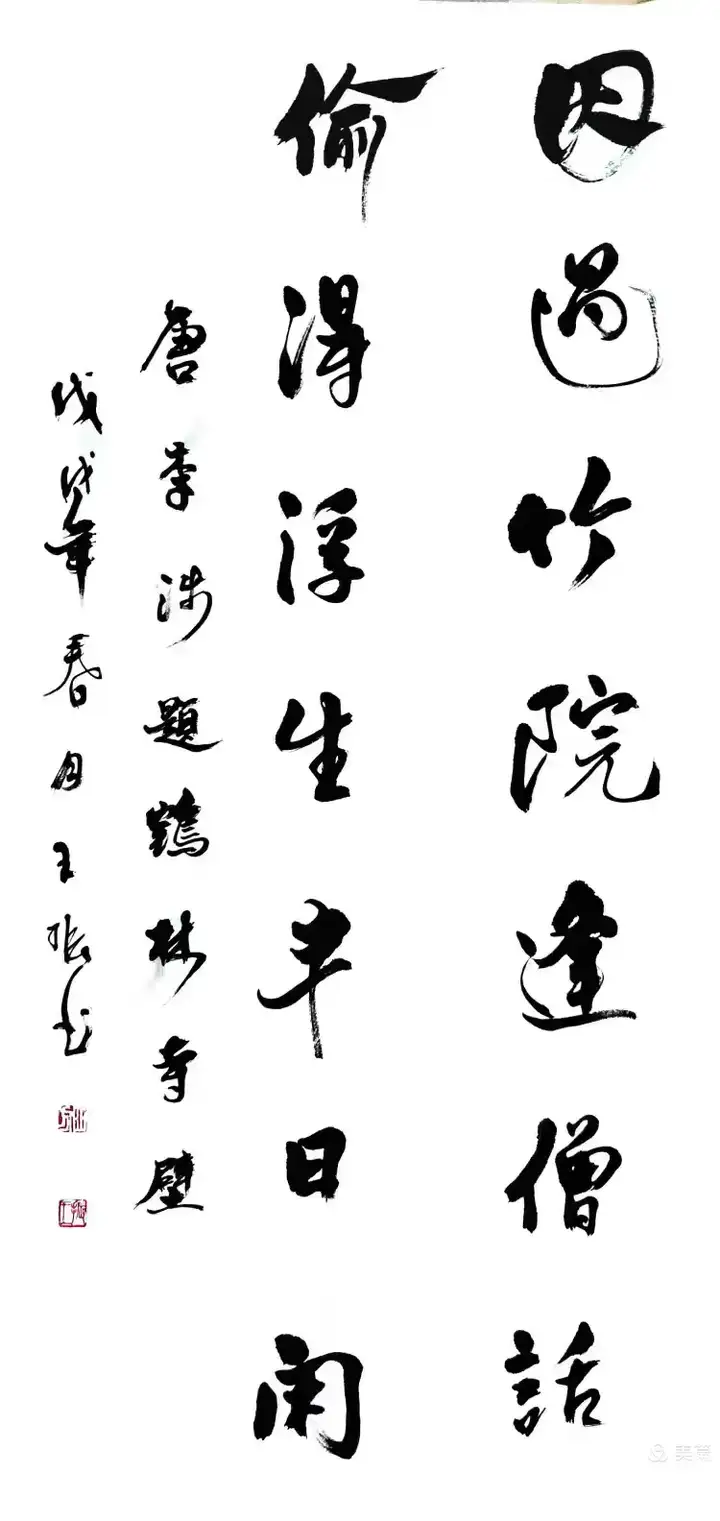 因過竹院逢僧話
偷得浮生半日閑
唐李涉題鶴林寺壁
戊戌年春月王振書
美篇